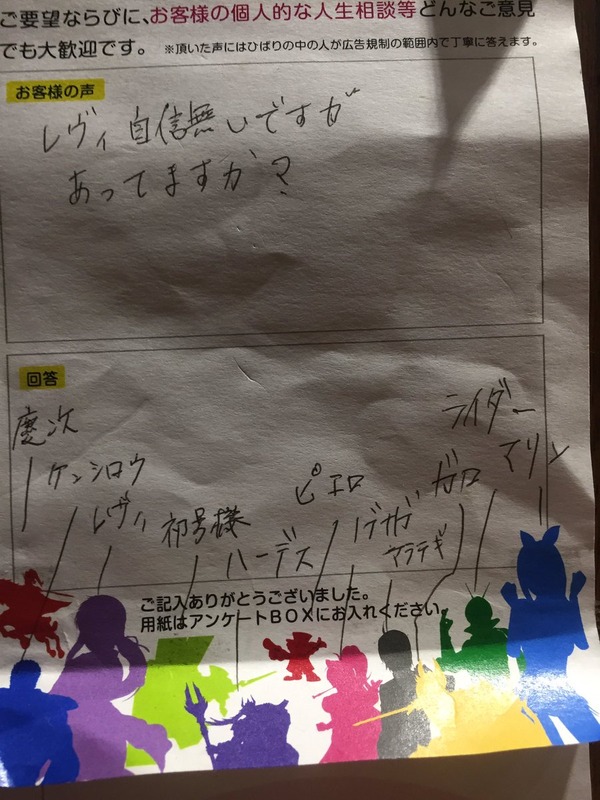 ご要望ならびに、お客様の個人的な人生相談等どんなご意見
でも大歓迎です。 ※頂いた声にはひばりの中の人が広告規制の範囲内で丁寧に答えます。
お客様の声
レヴィ 自信無いですが
あってますか?
回答
慶次
ケンシロウ
レヴィ
初号機
ハーデス
ピエロ
アララギ
ガロ
ライダー
マリン
ご記入ありがとうございました。
用紙はアンケートBOXにお入れください。